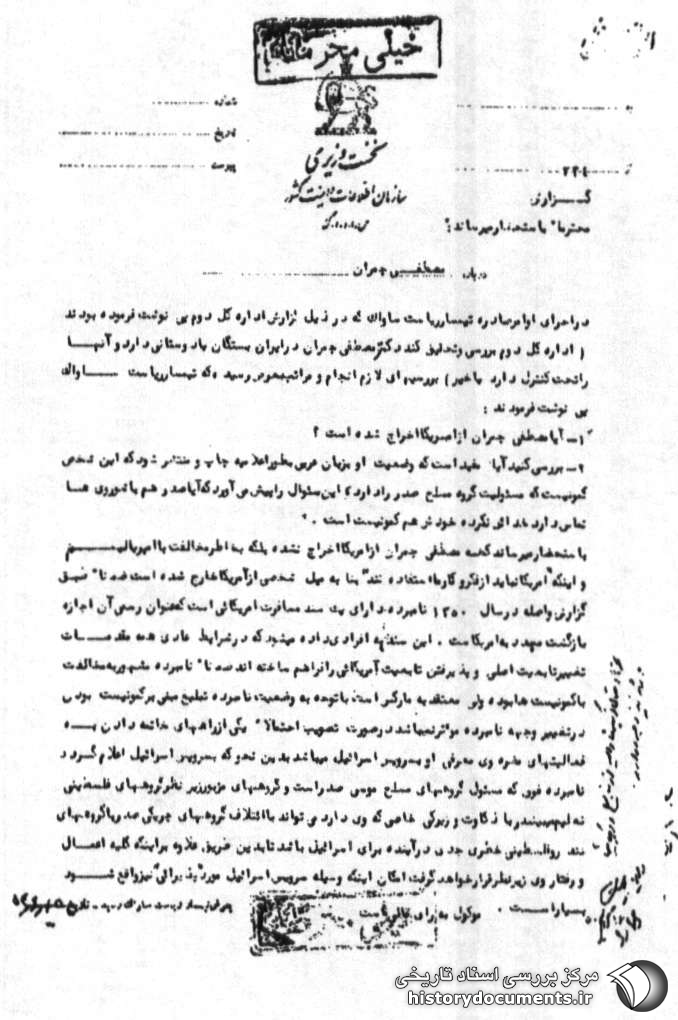 خیلی محرمانه
شماره
تاریخ
پیوست
به
از ۲۲۱
نخست وزیری
سازمان اطلاعات و امنیت کشور
گزارش
محترما" باستحضار میرساند:
درباره مصطفی چمران
در اجرای اوامر صادره تیمسار ریاست ساواک که در ذیل گزارش اداره کل دوم پی نوشت فرموده بودند
( اداره کل دوم بررسی و تحقیق کند دکتر مصطفی چمران در ایران بستگان یا دوستانی دارد و آنها
را تحت کنترل دارد یا خیر ) بررسیهای لازم انجام و مراتب بعرض رسیده که تیمسار ریاست ساواک
پی نوشت فرمودند :
۱- آیا مصطفی چمران از امریکا اخراج شده است ؟
۲- بررسی کنید آیا مفید است که وضعیت او بزبان عربی بطور اعلامیه چاپ و منتشر شود که این شخص
کمونیست که مسئولیت گروه مسلح صدر را دارد و این سئوال را پیش می آورد که آیا صدر هم با شوروی ها
تماس دارد خدای نکرده خودش هم کمونیست است .
باستحضار میرساند که مصطفی چمران از امریکا اخراج نشده بلکه بخاطر مخالفت با امپریالیسم
و اینکه "امریکا نباید از فکر و کار ما استفاده کند" بنا به میل شخصی از آمریکا خارج شده است ضمنا" طبق
گزارش واصله در سال ۱۳۵۰ نامبرده دارای یک سند مسافرت امریکائی است که بعنوان رسمی آن اجازه
بازگشت مجدد به امریکاست . این سند به افرادی داده میشود که در شرایط عادی همه مقدمات
تغییر تابعیت اصلی و پذیرفتن تابعیت آمریکائی را فراهم ساخته اند ضمنا" نامبرده مشهور به مخالفت
با کمونیست ها بوده ولی معتقد به مارکس است با توجه به وضعیت نامبرده تبلیغ مبنی بر کمونیست بودن
در تغییر وجهه نامبرده موثر نمیباشد در صورت تصویب احتمالا" یکی از راههای خاتمه دادن به
فعالیتهای مضره وی معرفی او به سرویس اسرائیل میباشد بدین نحو که به سرویس اسرائیل اعلام گردد
نامبرده فوق که مسئول گروههای مسلح موسی صدر است و گروههای مزبور زیر نظر گروههای فلسطینی
تعلیم میبینند با ذکاوت و زیرکی خاصی که وی دارد می تواند با ائتلاف گروههای چریکی صدر با گروههای
تند رو فلسطینی خطری جدی در آینده برای اسرائیل باشد تا بدین طریق علاوه بر اینکه کلیه اعمال
و رفتار وی زیر نظر قرار خواهد گرفت امکان اینکه وسیله سرویس اسرائیل مورد "پذیرائی" نیز واقع شود
بسیار است .
موکول به رای عالی است
مرکز بررسی اسناد تاریخی
historydocuments.ir